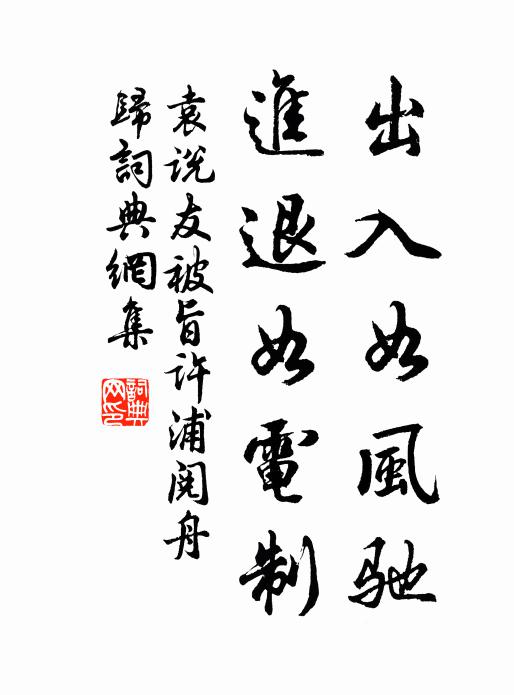 出入如風馳
進退如電制
袁說友被旨許浦閱舟
歸詞典網集
詞典
网印